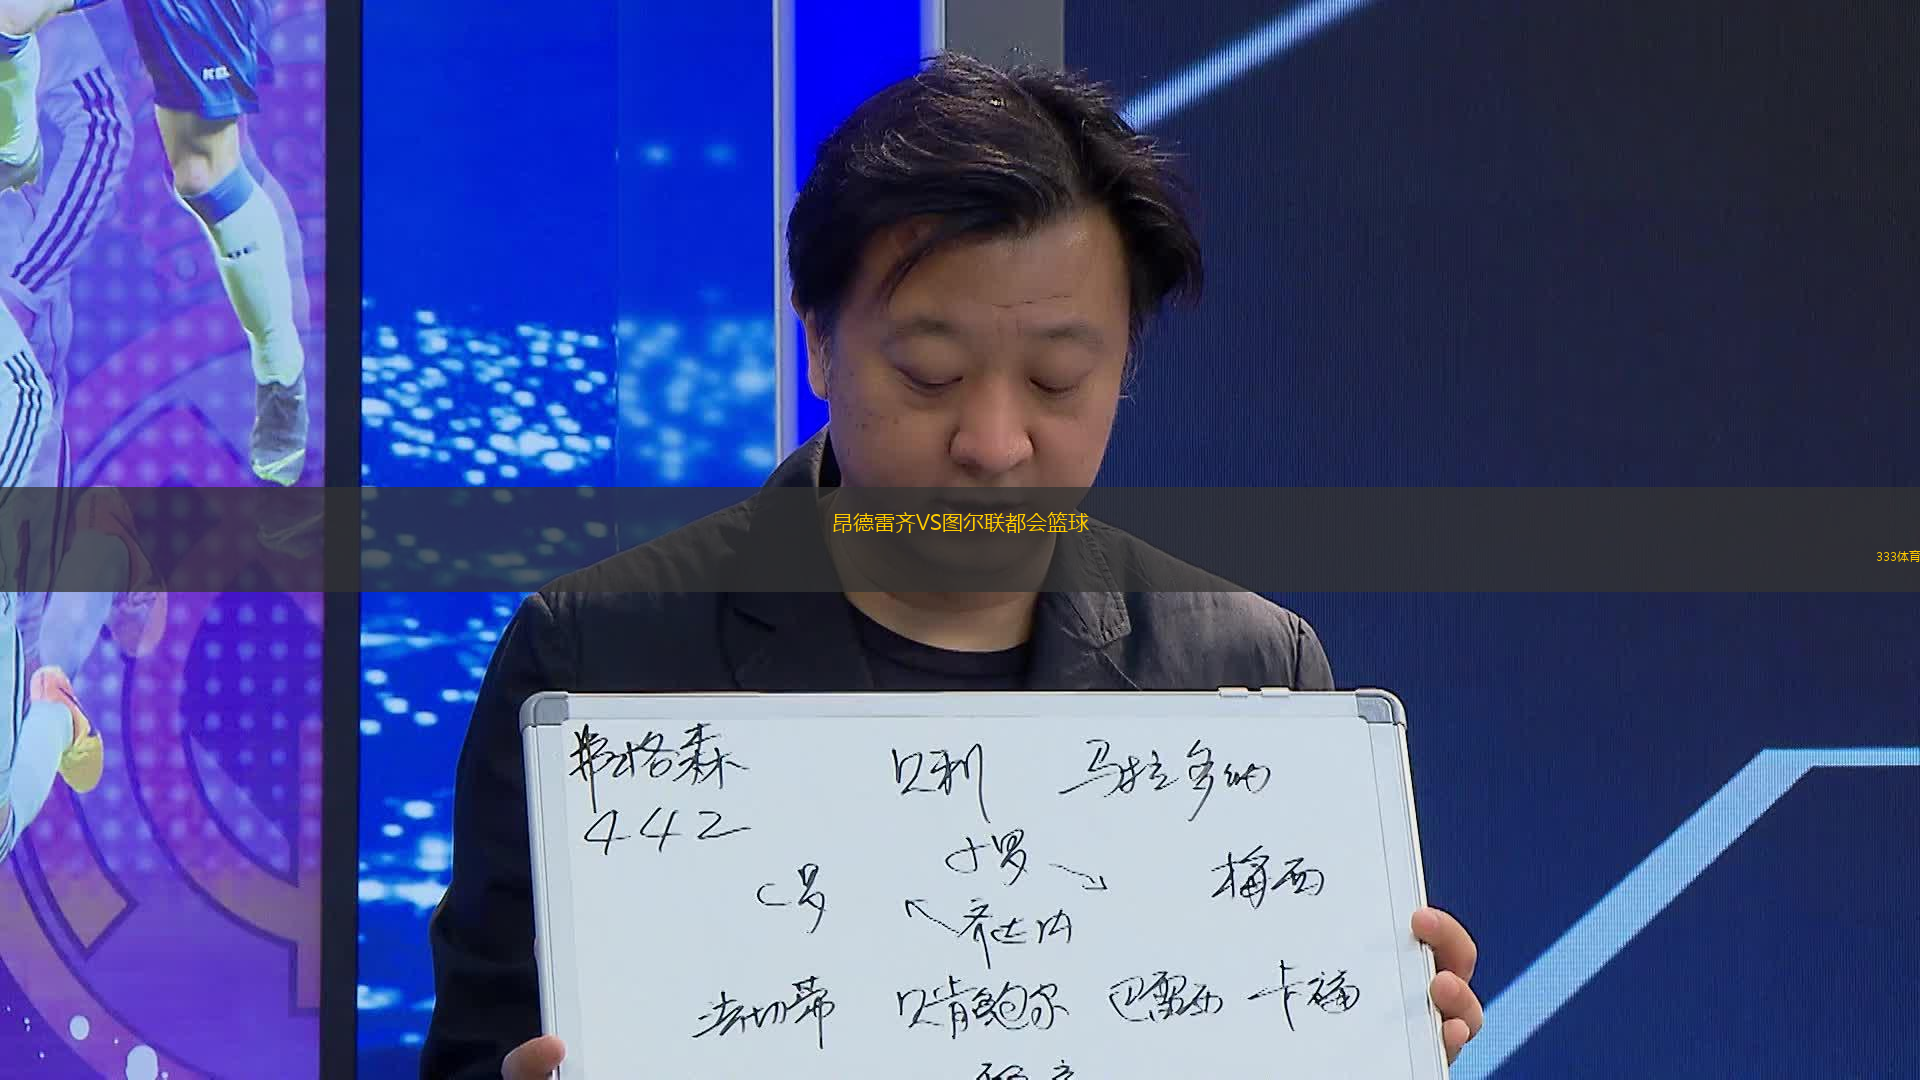 KEL
昂德雷齐VS图尔联都会篮球
333体育
弗格森 贝利 马拉多纳
442
小罗
C罗 梅西
齐达内
法切蒂 贝肯鲍尔 巴雷西 卡福